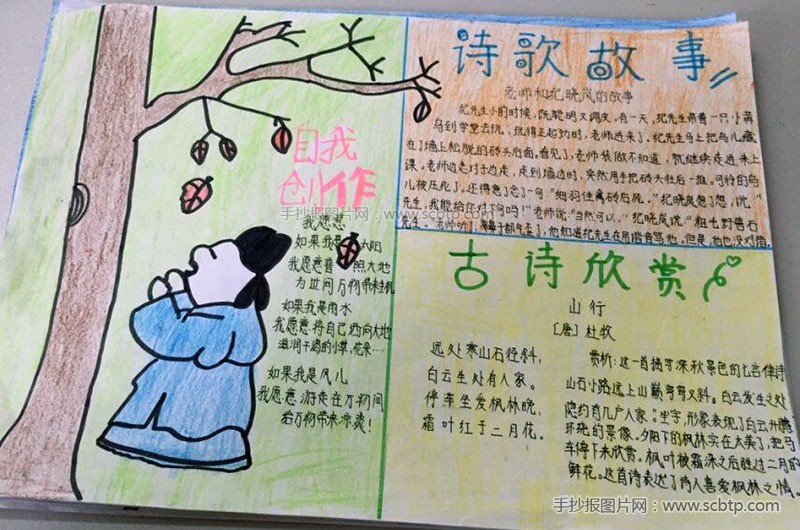 诗歌故事
老师和纪晓岚的故事
纪先生小的时候，既聪明又调皮，有一天，纪先生带着一只小
鸟到学堂去玩，玩得正起劲时，老师进来了，纪先生马上把鸟儿藏
在了墙上松脱的砖头后面。看见了，老师装做不知道，就继续走进来上
课。老师边走对子边走，走到墙边时，突然用手把砖头往后一推。可怜的鸟
儿被压死了，还得意了念了一句："细羽佳禽砖后死。"纪晓岚想了想，说，"
先生，我能给你对下句吗？"老师说："当然可以。"纪晓岚说"粗毛野兽石
先生。老师听了，鼻子都气歪了，他知道纪先生在用谐音骂他。但是，他也没对措
自我
创作
手抄报图片网：www.scbtp.com
我愿意
如果我是太阳
我愿意普照大地
为世间万物带来生机
如果我是雨水
我愿意将自己洒向大地
滋润干渴的小草，花朵……
如果我是风儿
我愿意游走在万物间
给万物带来凉爽！
古诗欣赏
山行
［唐］杜牧
远处寒山石径斜，
白云生处有人家。
停车坐爱枫林晚，
霜叶红于二月花。
赏析：这一首描写深秋景色的七言律诗
山石小路远上山巅弯弯又斜。白云发生之处
隐约有几户人家。"生"字，形象表现了白云升腾
环绕的景像。夕阳下的枫林实在太美了，把马
车停下来欣赏。枫叶被霜冻之后胜过二月的
鲜花。这首诗表达了诗人喜爱枫林之情。
手抄报图片网：www.scbtp.com